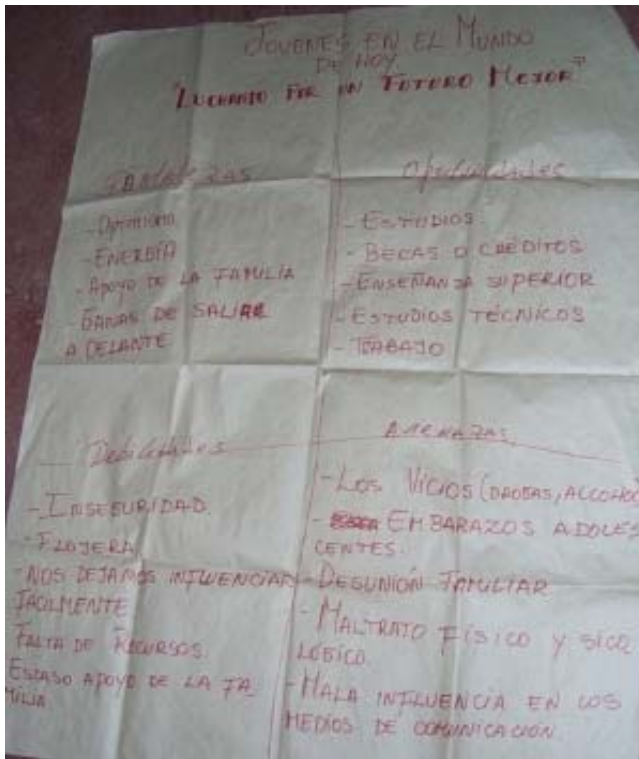 JOVENES EN EL MUNDO
DE HOY
"LUCHANDO POR UN FUTURO MEJOR"
FORTALEZAS
- OPTIMISMO
- ENERGÍA
- APOYO DE LA FAMILIA
- GANAS DE SALIR
ADELANTE
Oportunidades
- ESTUDIOS
- BECAS O CRÉDITOS
- ENSEÑANZA SUPERIOR
- ESTUDIOS TÉCNICOS
- TRABAJO
Debilidades
- INSEGURIDAD.
- FLOJERA
- NOS DEJAMOS INFLUENCIAR
FACILMENTE
FALTA DE RECURSOS.
ESCASO APOYO DE LA FA
MILIA
AMENAZAS
- LOS VICIOS (DROGAS, ALCOHOL
- EMBARAZOS ADOLES
CENTES.
- DESUNIÓN FAMILIAR
- MALTRATO FÍSICO Y SICO
LÓGICO.
- MALA INFLUENCIA EN LOS
MEDIOS DE COMUNICACIÓN.